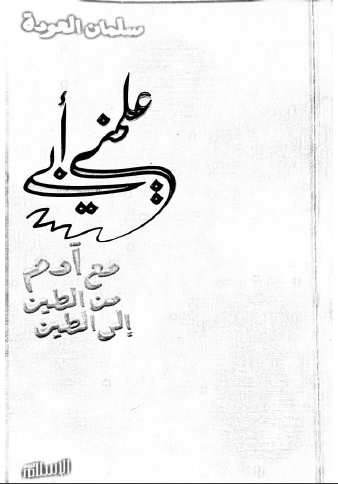 سلمان العودة
علمني أبي
مع آدم
من الطين
إلى الطين
الإسلام اليوم